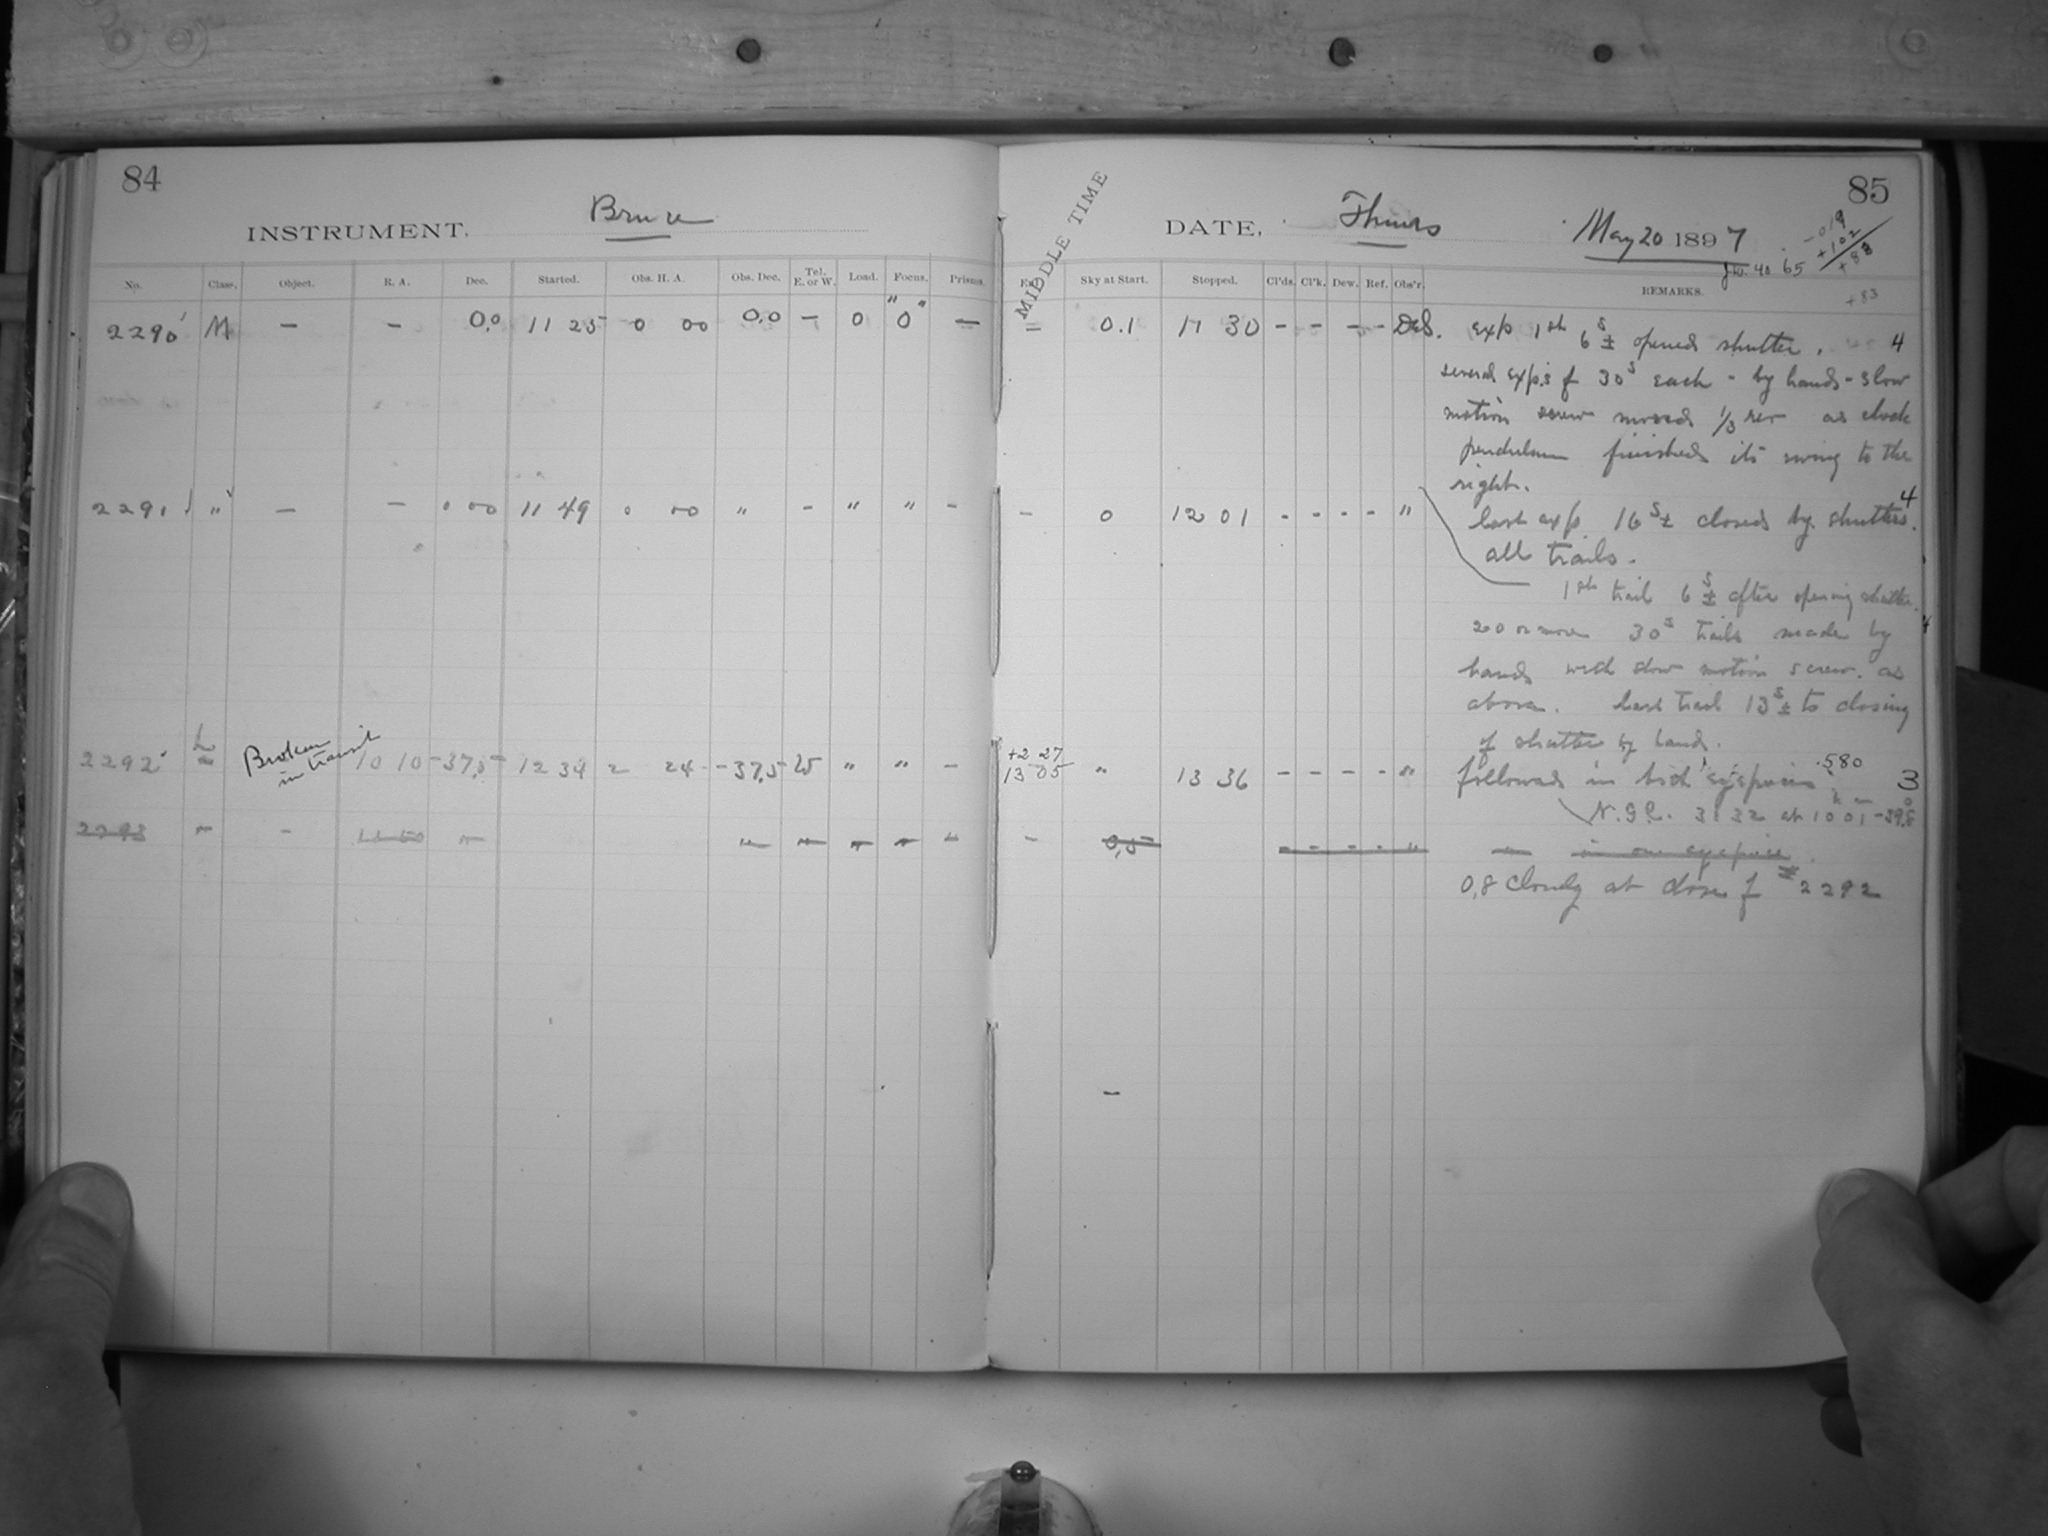 84
85
INSTRUMENT, Bruce
MIDDLE TIME
DATE, Thurs May 20 1897
-019
+102
+83
40 65
No. Class. Object. R. A. Dec. Started. Obs. H. A. Obs. Dec. Tel. E. or W. Load. Focus. Prisms. Sky at Start. Stopped. Cl'ds. Cl'k. Dew. Ref. Obs'r. REMARKS.
+83
2290 M — — 0,0 11 25 0 00 0,0 — 0 0 — = 0.1 11 30 - - - - exp 1st 6s± opened shutter. 4
several exps of 30s each - by hand - slow
motion screw moved 1/3 rev as clock
pendulum finished its swing to the
right.
2291 " — — 0 00 11 49 0 00 " - " " - - 0 12 01 - - - - " last exp 16s± closed by shutters. 4
all trails.
1st trail 6s± after opening shutter.
20 or more 30s trails made by
hand with slow motion screw as
above. Last trail 13s± to closing
of shutter by hand.
2292 L Broken in transit 10 10 -37,5 12 34 2 24 -37,5 W " " - +2 27 13 05 " 13 36 - - - - " followed in both eyepieces .580 3
N.G.C. 3132 at 10h 01m -39,8
2293 " - " " " " " " - 0,5 - - - - " " in one eyepiece.
0,8 Cloudy at close of # 2292